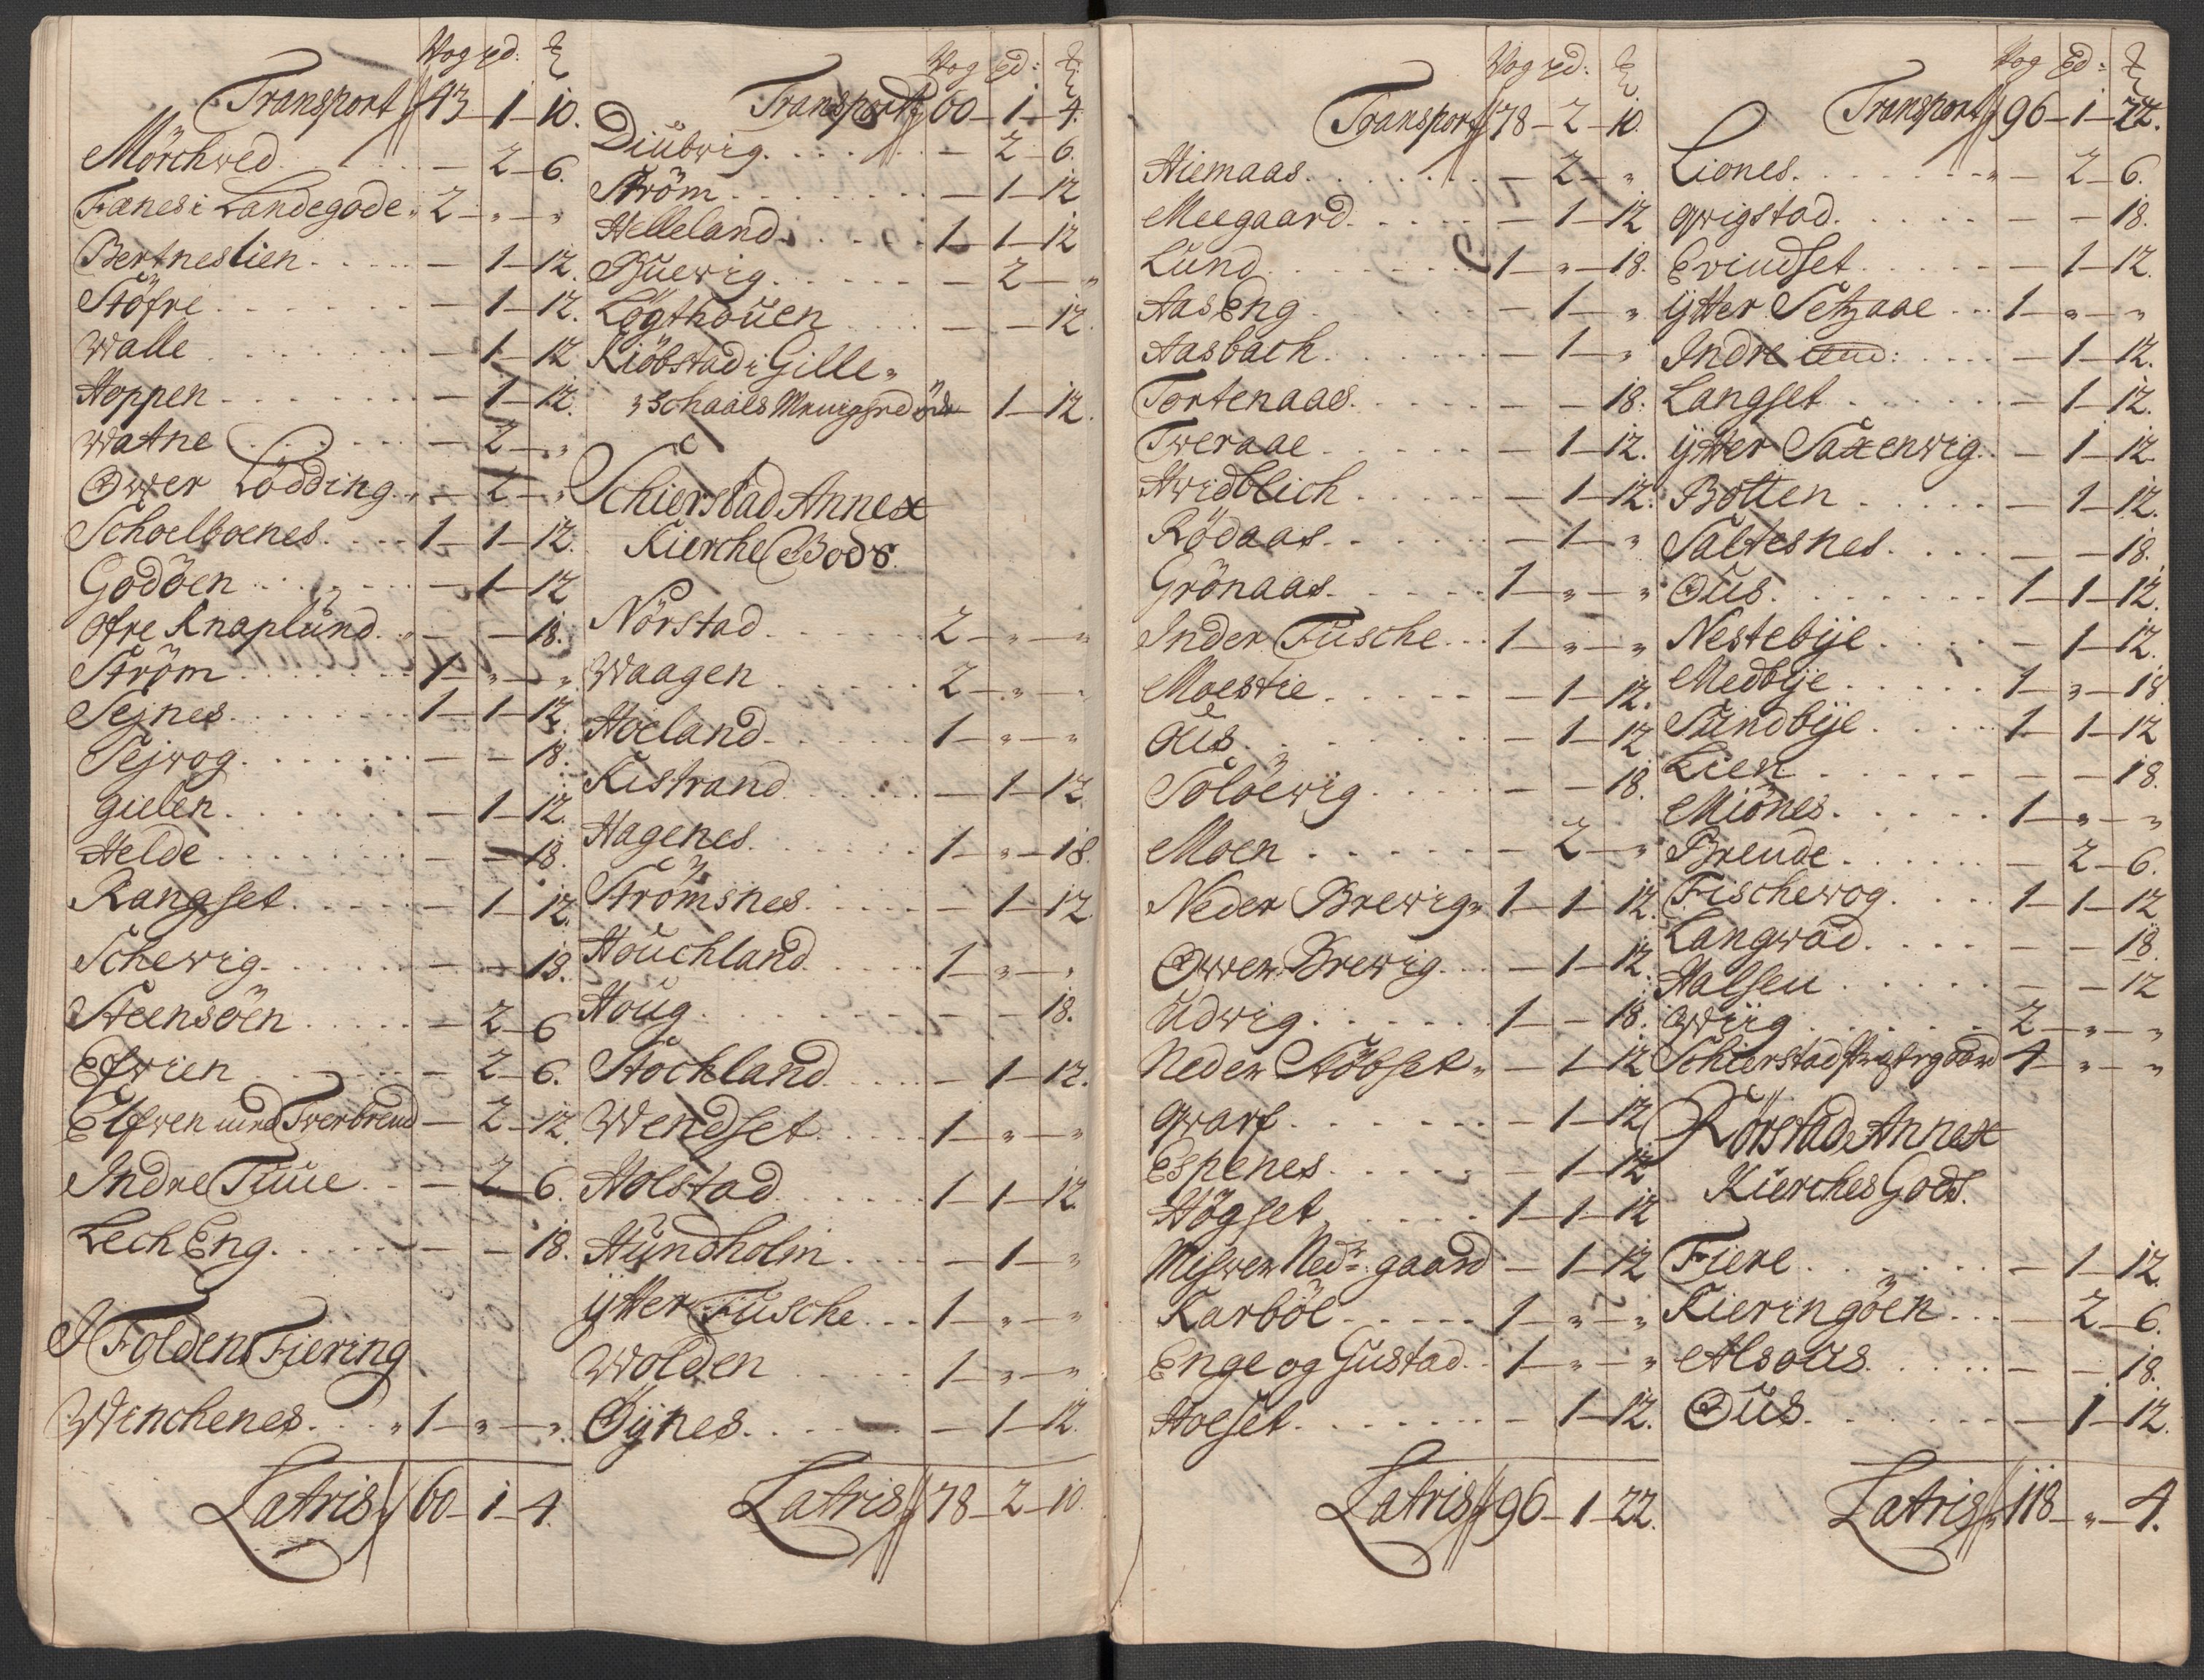 Wog pd: ℔
Transport 43 – 1 – 10.
Mörchved. . . . – 2 – 6.
Fænes i Landegode " 2 – " – "
Bertneslien . . . . – 1 – 12.
Støfre . . . . – 1 – 12.
Walle . . . . – 1 – 12
Hoppen . . . . – 1 – 12.
Watne . . . . – 2 – "
Øwer Lödding . . – 2 – "
Schoelboenes . . . 1 – 1 – 12.
Godöen . . . . – 1 – 12
Øfre Knaplünd . . – – 18.
Ström . . . . 1 – " – "
Sejnes . . . . 1 – 1 – 12.
Sejwog . . . . – – 18.
Gielen . . . . – 1 – 12.
Helde . . . . – – 18.
Rangset . . . . – 1 – 12.
Schevig . . . . – – 18.
Steensöen . . . . – 2 – 6
Efwien . . . . – 2 – 6.
Elfwen und Twerbrend – 2 – 12.
Indre Tüüe . . . – 2 – 6.
Lech Eng. . . . . – – 18.
I Foldens Fiering
Winchenes . . . " 1 – " – "
Latris 60 – 1 – 4.
Wog pd: ℔
Transport 60 – 1 – 4.
Diübwig . . . . – 2 – 6.
Ström . . . . – 1 – 12
Helleland . . . . 1 – 1 – 12
Büewig . . . . – 2 – "
Lögthoüen . . . . – – 12.
Kiöbstad i Gille-
schaals – 1 – 12.
Schierstad Annex
Kierche Gods.
Nörstad . . . . 2 – " – "
Waagen . . . . 2 – " – "
Hoeland . . . . 1 – " – "
Kistrand . . . . – 1 – 12.
Hagenes . . . . 1 – " – 18.
Strömsnes . . . . – 1 – 12.
Hoüchland . . . . 1 – " – "
Hoüg . . . . – – 18.
Stochland . . . . – 1 – 12.
Wendset . . . . 1 – " – "
Holstad . . . . 1 – 1 – 12.
Hündholm . . . . – 1 – "
ÿtter Füsche . . . 1 – " – "
Wolden . . . . 1 – " – "
Øÿnes . . . . – 1 – 12.
Latris 78 – 2 – 10.
Wog pd: ℔
Transport 78 – 2 – 10.
Hiemaas . . . . – 2 – "
Meegaard . . . . – 1 – 12
Lünd . . . . 1 – " – 18.
Aas Eng . . . . – 1 – "
Aasbach . . . . – 1 – "
Tortenaas . . . . – – 18.
Tweraae . . . . – 1 – 12.
Hwidblich . . . . – 1 – 12.
Rödaas . . . . – 1 – "
Grönaas . . . . 1 – " – "
Inder Füsche . . . 1 – " – "
Moestie . . . . – 1 – 12.
Oüs . . . . – 1 – 12
Solöewig . . . . – – 18.
Moen . . . . – 2 – "
Neder Brewig " 1 – 1 – 12.
Øwer Brewig . . . – 1 – 12.
Udwig . . . . 1 – – 18.
Neder Stöbset " – 1 – 12
qwarf . . . . – 1 – 12
Espenes . . . . – 1 – 12
Högset . . . . 1 – 1 – 12
Misver Nedr gaard – 1 – 12
Karböl . . . . 1 – " – "
Enge og Gustad . . 1 – " – "
Holset . . . . – 1 – 12.
Latris 96 – 1 – 22.
Wog pd: ℔
Transport 96 – 1 – 22.
Liones . . . . – 2 – 6.
qwigstad . . . . – – 18.
Evindset . . . . – 1 – 12.
ÿtter Setzaae . . . 1 – " – "
Indre . . . . – 1 – 12.
Langset . . . . – 1 – 12.
ÿtter Saxenwig . . – 1 – 12.
Botten . . . . – 1 – 12.
Saltesnes . . . . – – 18.
Oüs . . . . 1 – 1 – 12.
Nestebÿe . . . . – 1 – 12.
Medbÿe . . . . 1 – " – 18
Sündbÿe . . . . 1 – 1 – 12
Lien . . . . – – 18.
Miönes . . . . 1 – " – "
Breude . . . . – 2 – 6.
Fischewog . . . . 1 – 1 – 12
Langwad . . . . – – 18.
Halsen . . . . – – 12
Wiig . . . . 2 – " – "
Schierstad Prestgaard 4 – " – "
Rörstad Annex
Kierches Gods.
Fiere . . . . – 1 – 12.
Kieringöen . . . – 2 – 6.
Alsoüs . . . . – – 18.
Oüs . . . . – 1 – 12.
Latris 118 – " – 4.